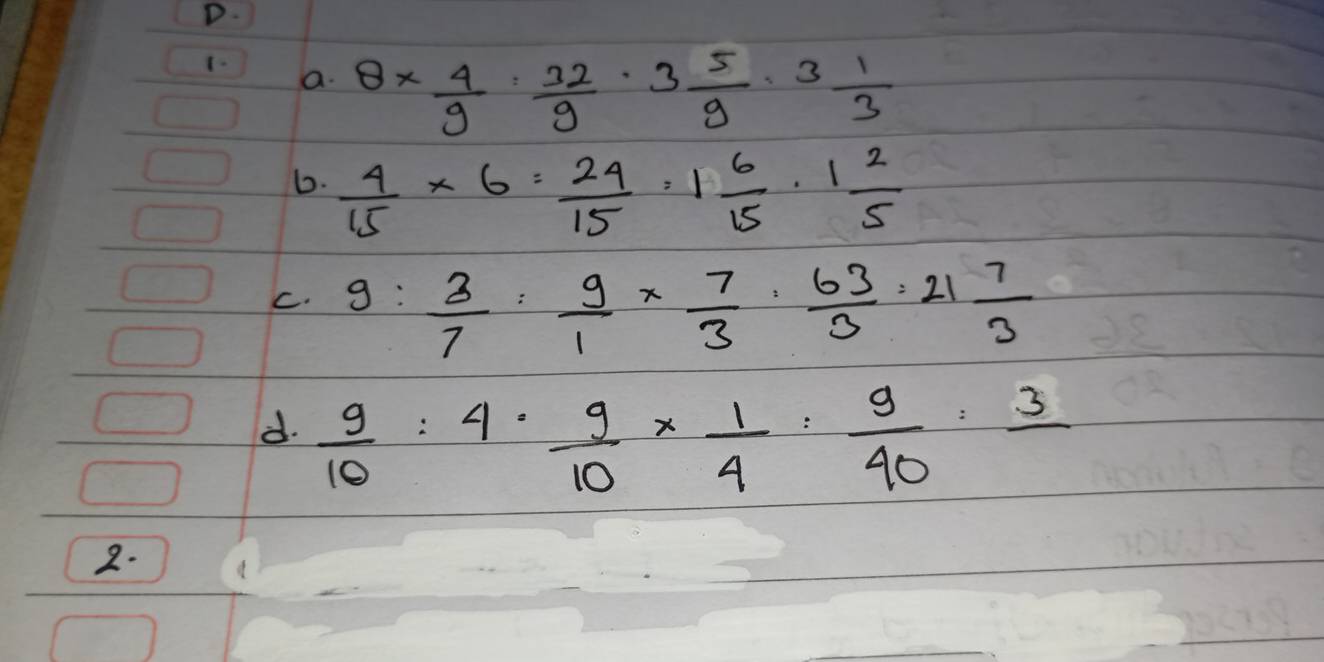 D.
1. a. 8 × 4/9 = 32/9 = 3 5/9 = 3 1/3
b. 4/15 × 6 = 24/15 = 1 6/15 = 1 2/5
c. 9 : 3/7 = 9/1 × 7/3 = 63/3 = 21 7/3
d. 9/10 : 4 = 9/10 × 1/4 = 9/40 = 3/
2.